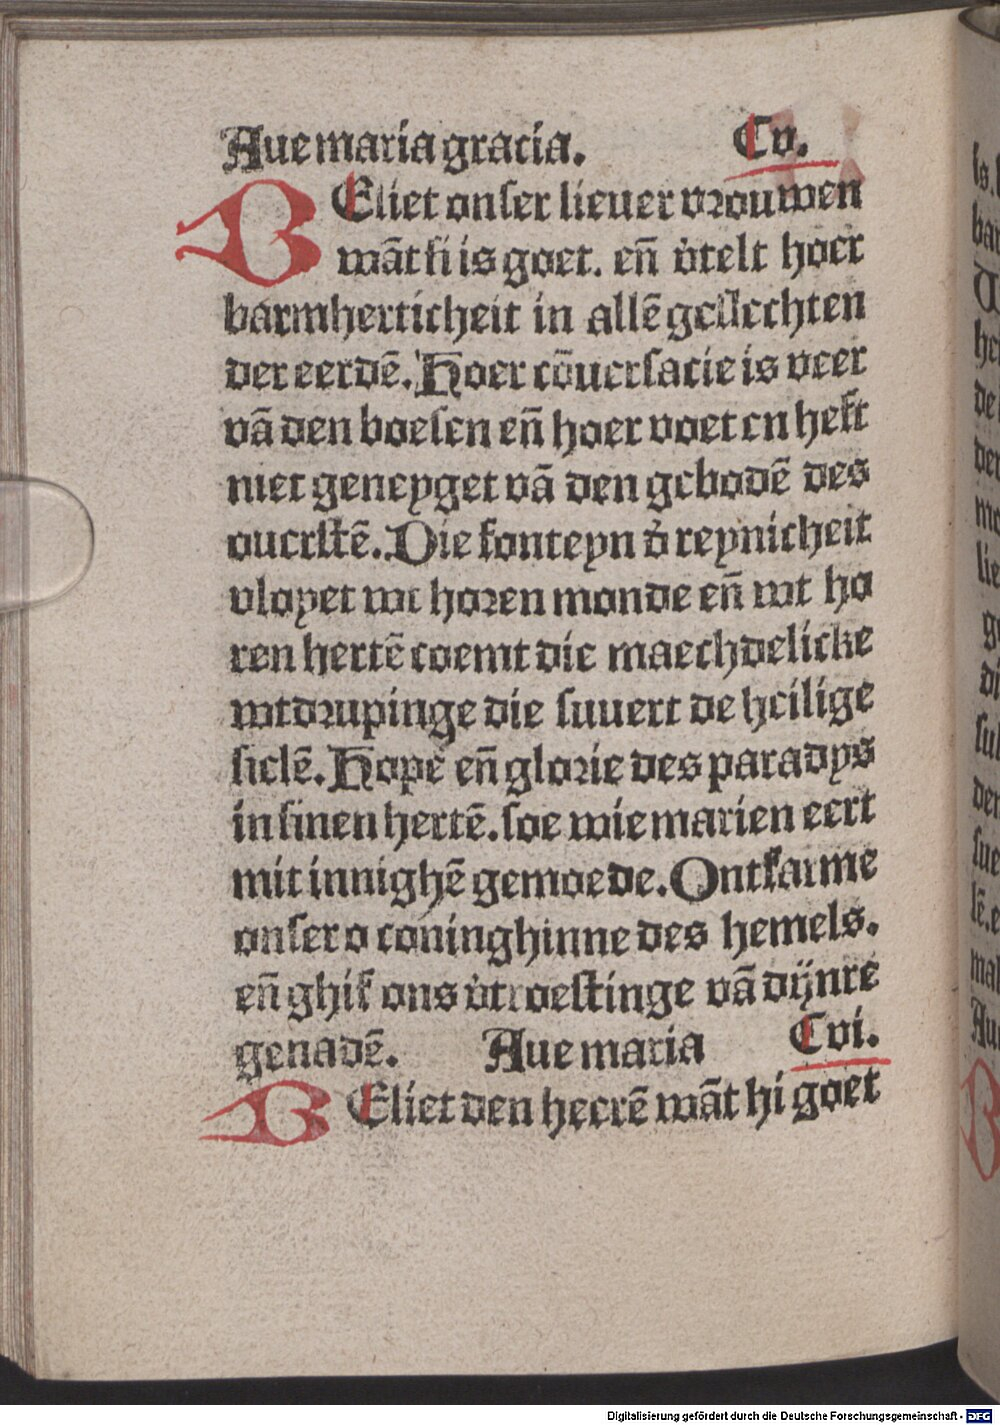 Aue maria gracia. Cv.
BEliet onser lieuer vrouwen
wāt si is goet. eñ v̓telt hoer
barmherticheit in allē geslechten
der eerdē. Hoer cōuersacie is veer
vā den boesen eñ hoer voet en heft
niet geneyget vā den gebodē des
ouerstē. Die fonteyn d̓ reynicheit
vloyet wt horen monde eñ wt ho
ren hertē coemt die maechdelicke
wtdrupinge die suuert de heilige
sielē. Hope eñ glorie des paradys
in sinen hertē. soe wie marien eert
mit innighē gemoede. Ontfarme
onser o coninghinne des hemels.
eñ ghif ons v̓troestinge vā dÿnre
genadē. Aue maria Cvi.
BEliet den heerē wāt hi goet
Digitalisierung gefördert durch die Deutsche Forschungsgemeinschaft - DFG